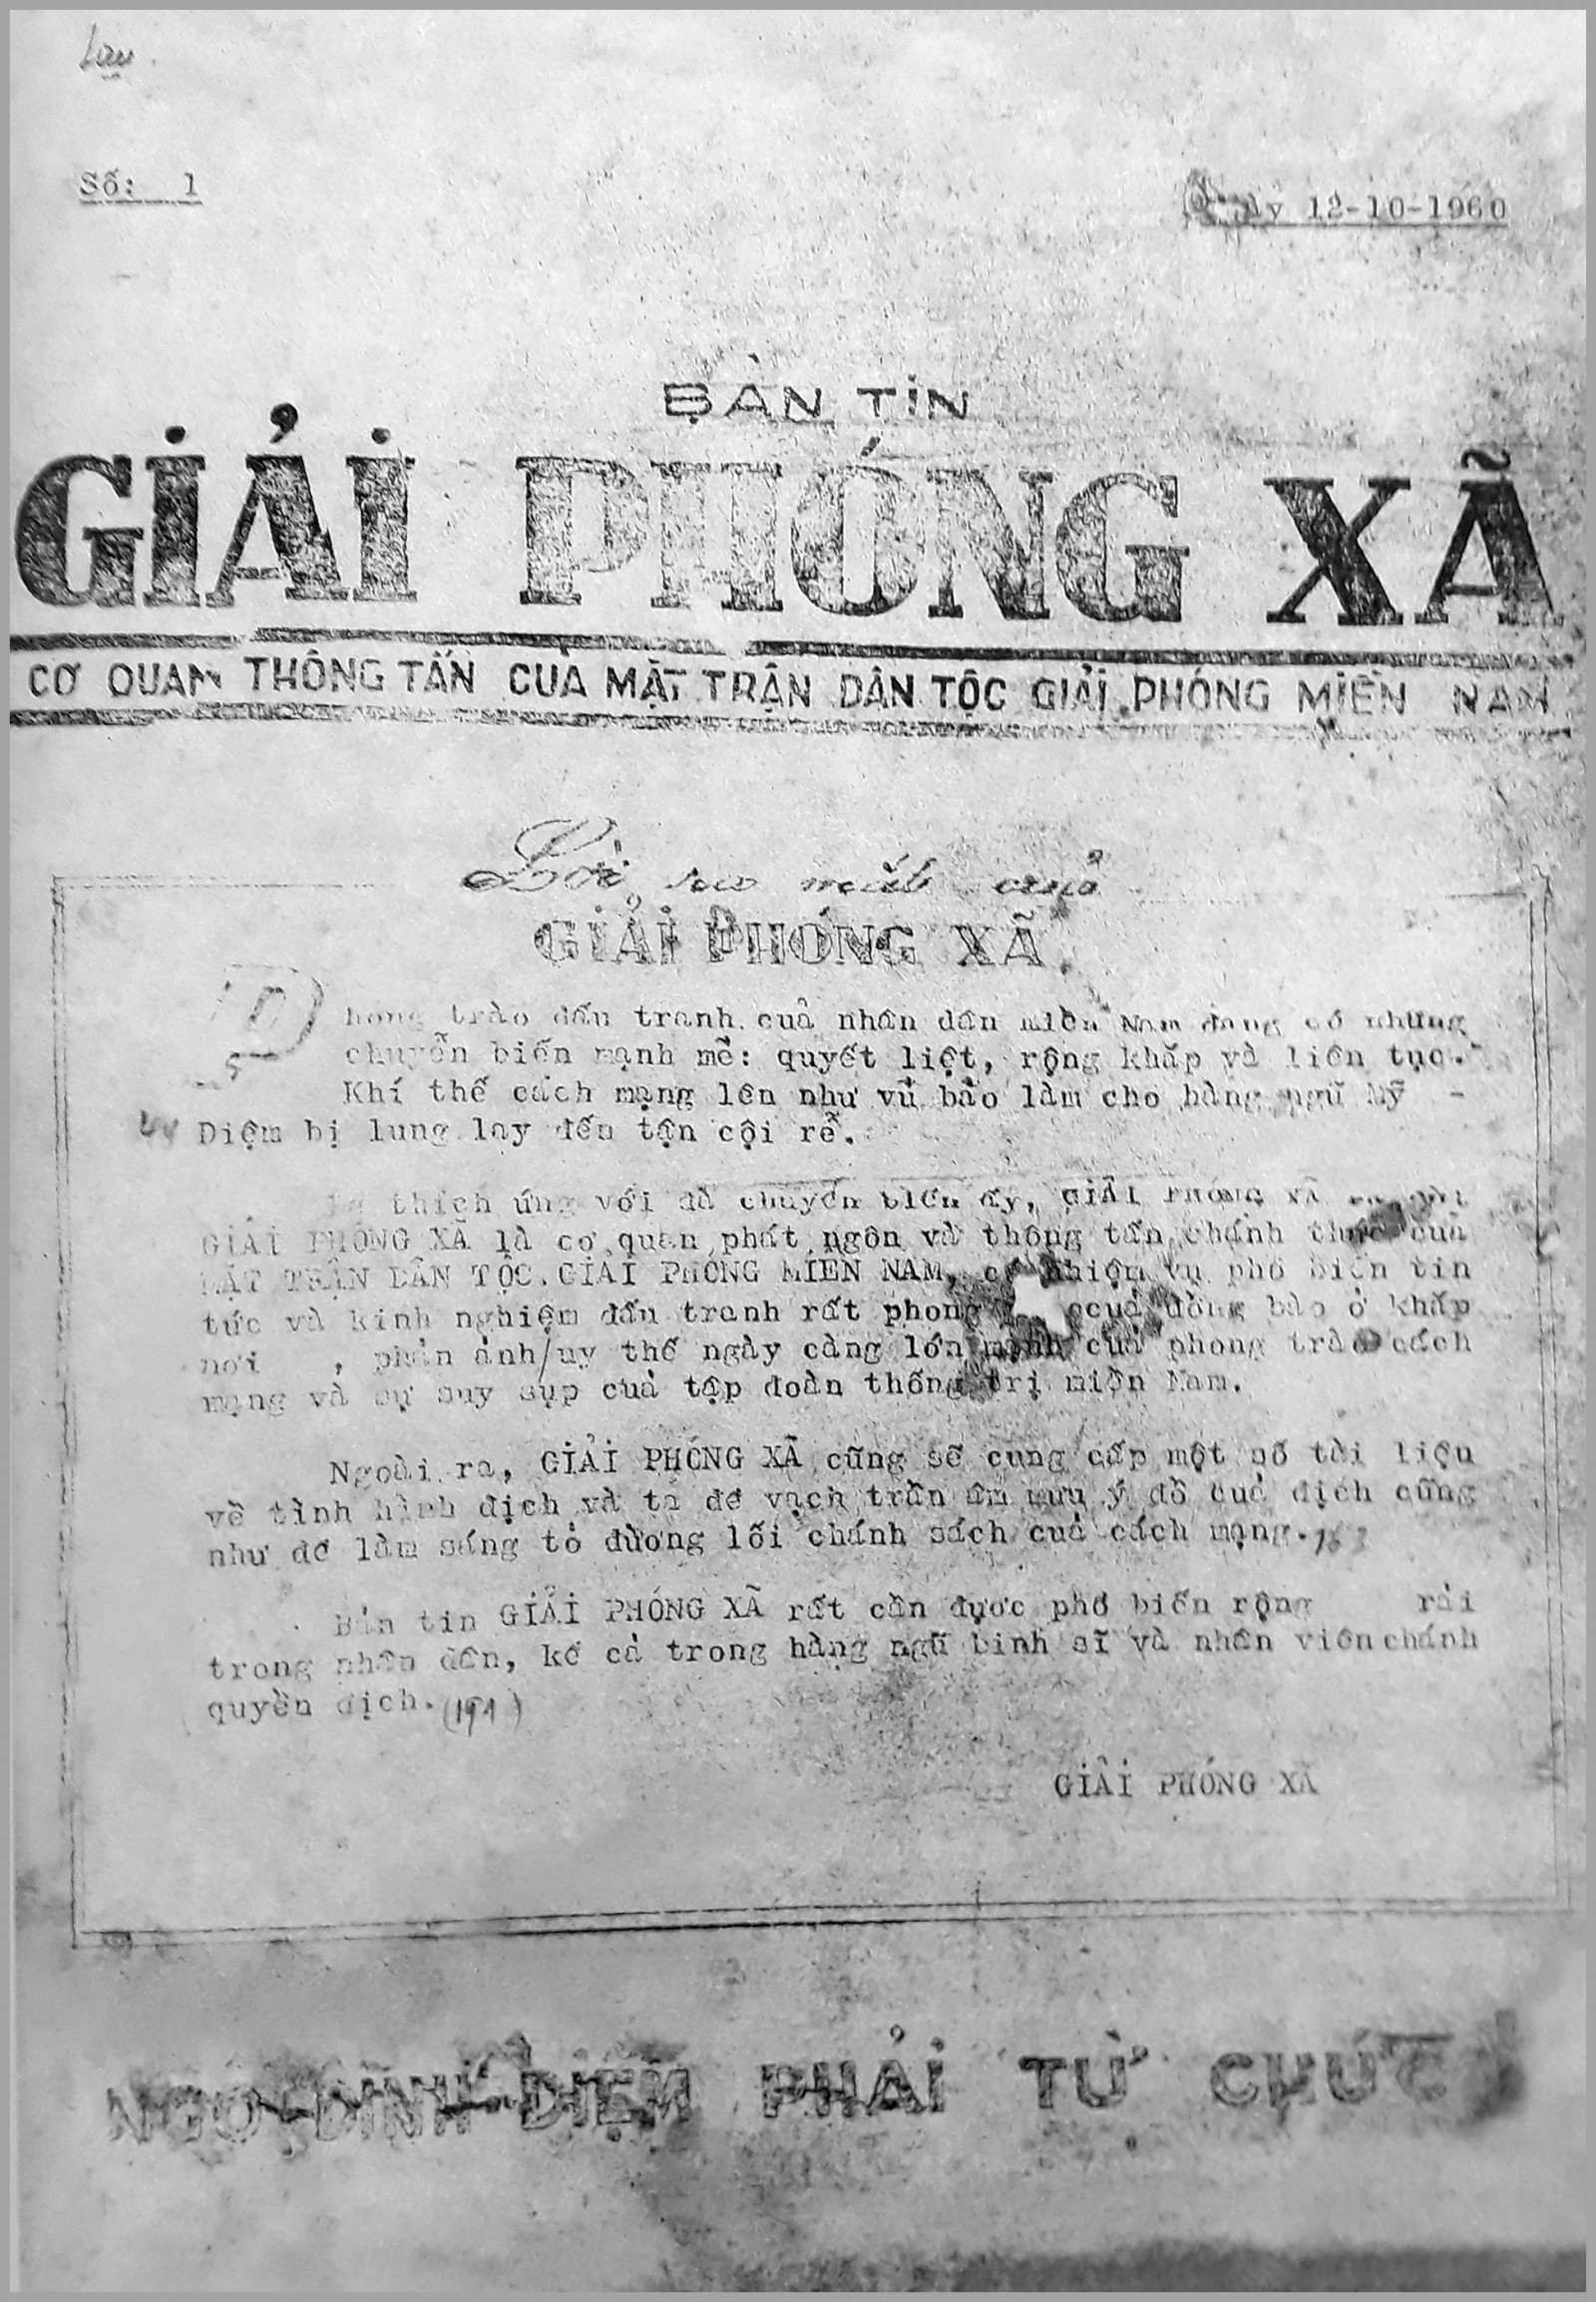 Số: 1
12-10-1960
BẢN TIN
GIẢI PHÓNG XÃ
CƠ QUAN THÔNG TẤN CỦA MẶT TRẬN DÂN TỘC GIẢI PHÓNG MIỀN NAM
Lời ra mắt củả
GIẢI PHÓNG XÃ
hong trào đấu tranh cuả nhân dân miền Nam đang có những
chuyển biến mạnh mẽ: quyết liệt, rộng khắp và liên tục.
Khí thế cách mạng lên như vũ bảo làm cho hàng ngũ Mỹ -
Diệm bị lung lay đến tận cội rễ.
thích ứng với đà chuyển biến ấy, GIẢI PHÓNG XÃ
GIẢI PHÓNG XÃ là cơ quan phát ngôn và thông tấn chánh thức cuả
MẶT TRẬN DÂN TỘC GIẢI PHÓNG MIỀN NAM, có nhiệm vụ phổ biến tin
tức và kinh nghiệm đấu tranh rất phong ccuả đồng bào ở khắp
nơi , phản ảnh/uy thế ngày càng lớn mạnh cuả phong trào cách
mạng và sự suy sụp cuả tập đoàn thống trị miền Nam.
Ngoài ra, GIẢI PHÓNG XÃ cũng sẽ cung cấp một số tài liệu
về tình hình địch và ta để vạch trần âm mưu ý đồ cuả địch cũng
như để làm sáng tỏ đường lối chánh sách cuả cách mạng.
Bản tin GIẢI PHÓNG XÃ rất cần được phổ biến rộng rải
trong nhân dân, kể cả trong hàng ngũ binh sĩ và nhân viên chánh
quyền địch. (191)
GIẢI PHÓNG XÃ
NGÔ ĐÌNH DIỆM PHẢI TỪ CHỨC